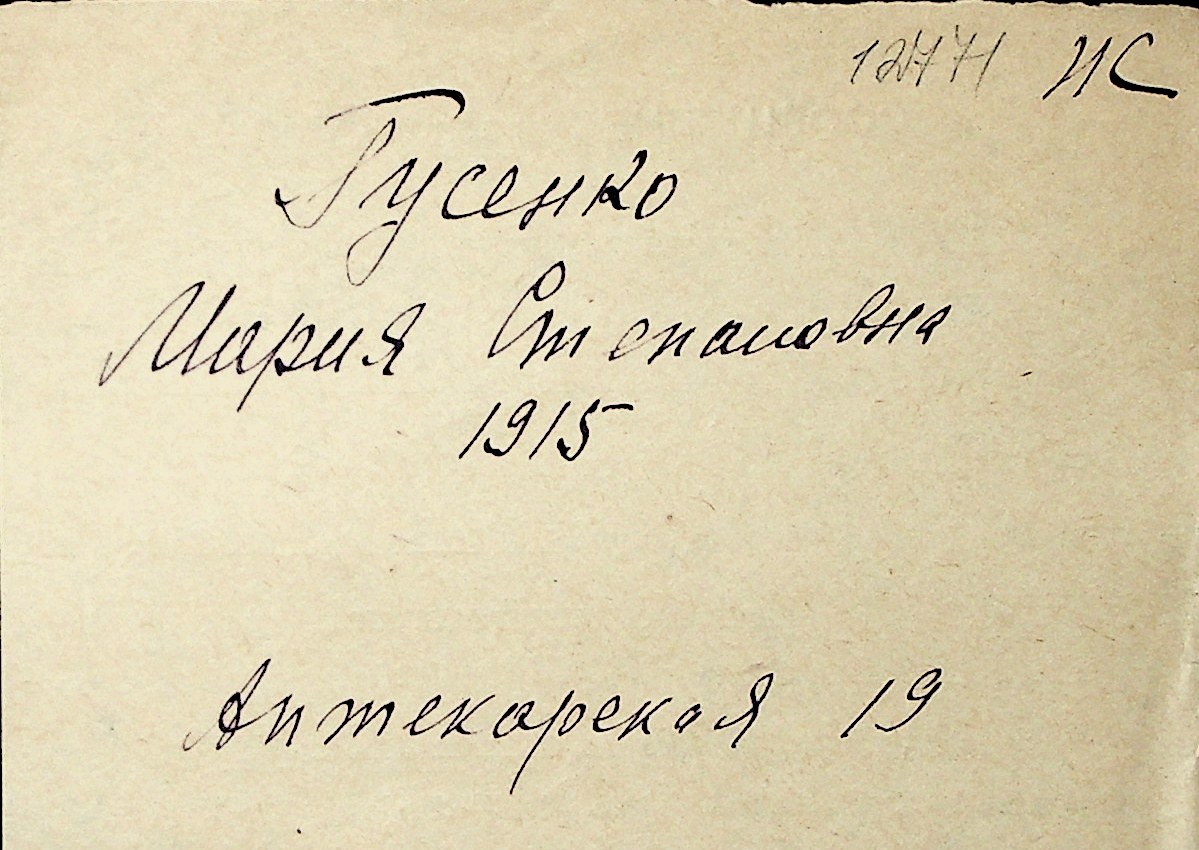 12771 ИС
Гусенко
Мария Степановна
1915
Аптекарская 19